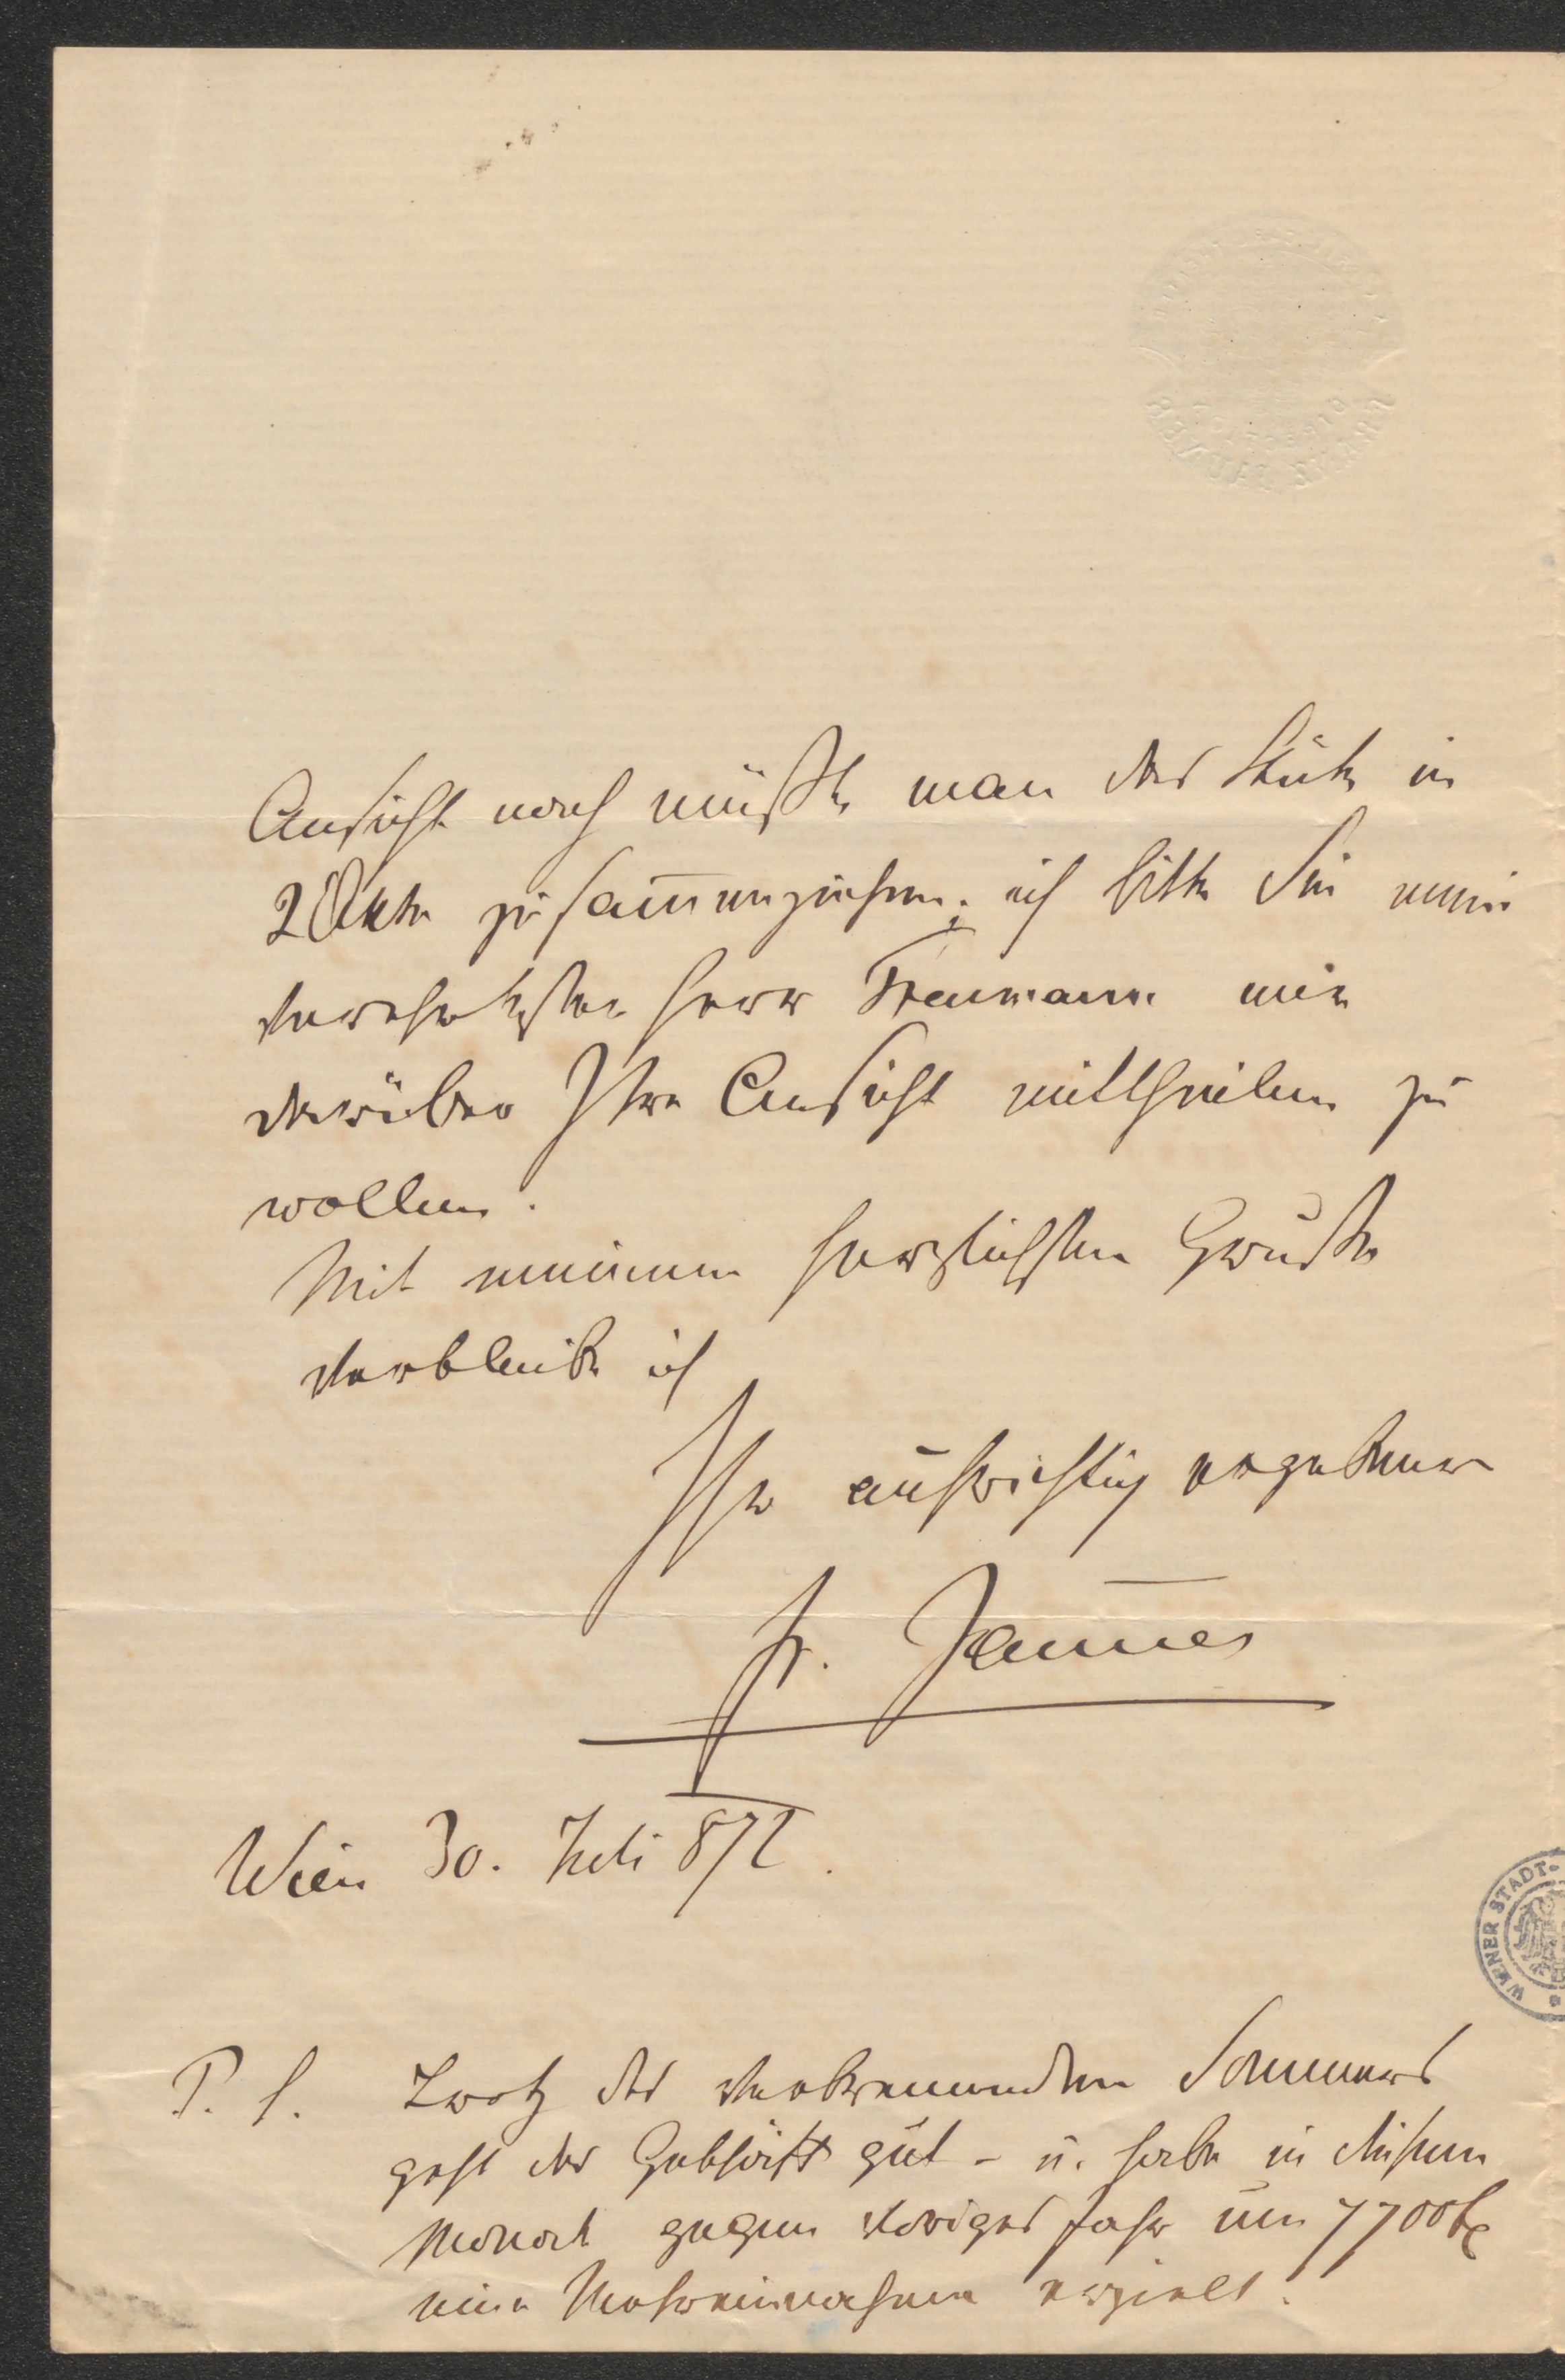 Ansicht nach müßte man das Stück in
2 Akte zusam̅enziehen; ich bitte Sie mein
verehrtester Herr Treumann mir
darüber Ihre Ansicht mittheilen zu
wollen.
Mit meinem herzlichsten Gruße
verbleibe ich
Ihr aufrichtig ergebener
Fr. Jaūner
Wien 30. Juli 872.
WIENER STADT-
P. S. Trotz des Sommers
geht das Geschäft gut – u. habe in diesem
Monat gegen voriges Jahr um 7700 f
eine Mehreinnahme erzielt.